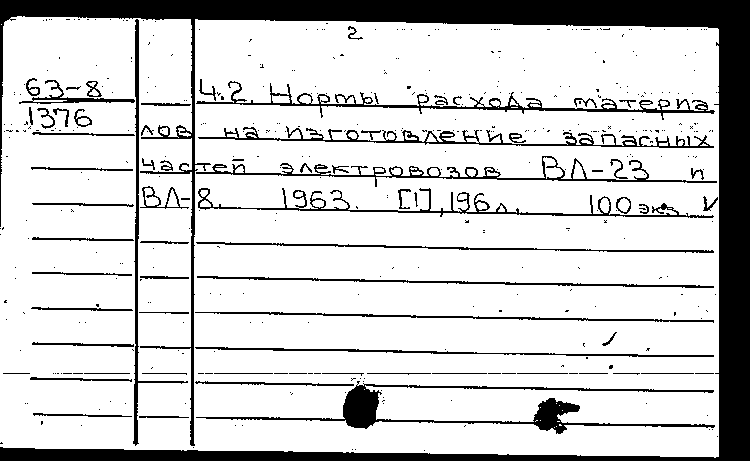 2
63-8
1376
Ч.2. Нормы расхода материа-
лов на изготовление запасных
частей электровозов ВЛ-23 и
ВЛ-8. 1963. [1], 196 л. 100 экз. V